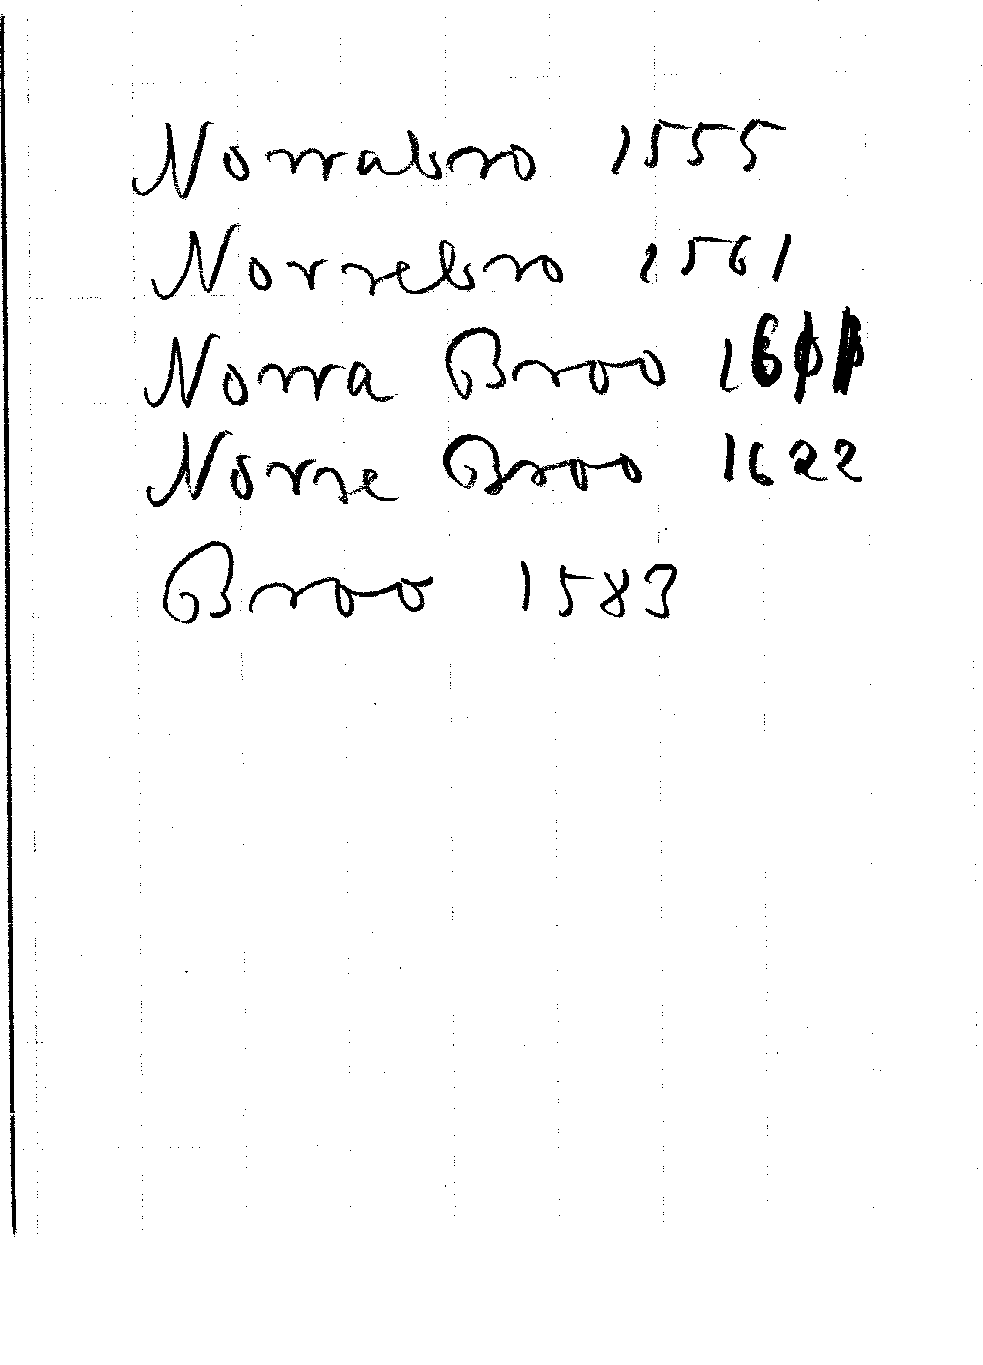 Norrabro 1555
Norrebro 1561
Norra Broo
Norre Broo 1622
Broo 1583